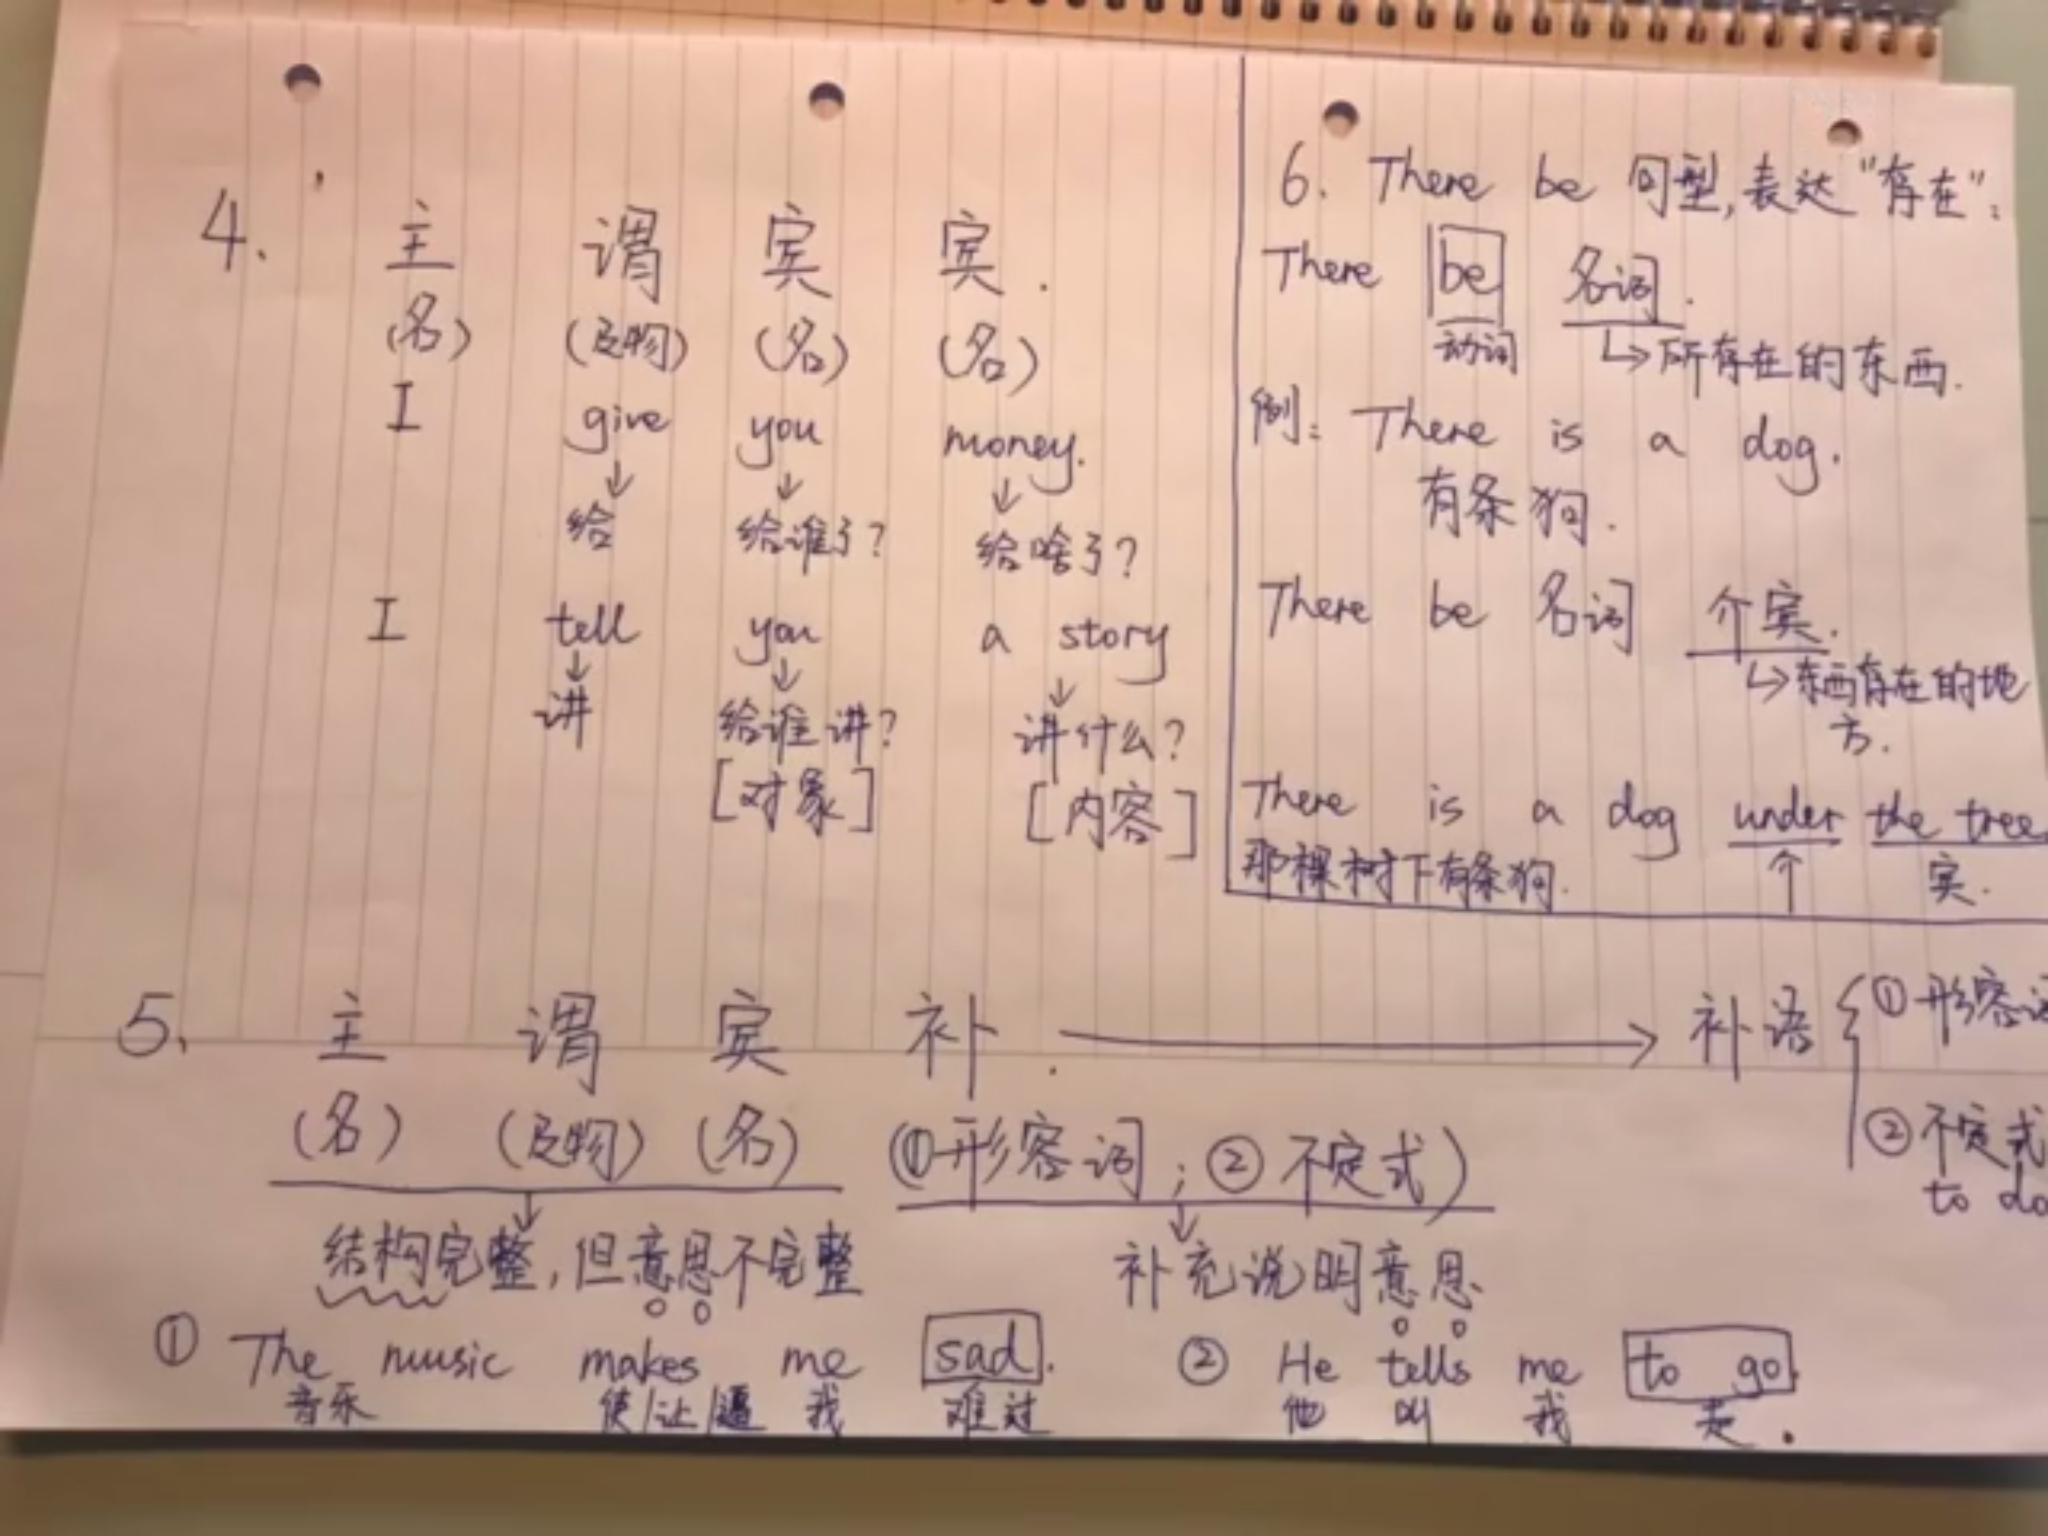 4. 主 谓 宾 宾.
(名) (及物) (名) (名)
I give you money.
↓ ↓ ↓
给 给谁了? 给啥了?
I tell you a story
↓ ↓ ↓
讲 给谁讲? 讲什么?
[对象] [内容]
6. There be 句型,表达"存在":
There be 名词.
动词 ↳所存在的东西.
例: There is a dog.
有条狗.
There be 名词 介宾.
↳东西存在的地
方.
There is a dog under the tree
那棵树下有条狗. 介 宾.
5. 主 谓 宾 补. → 补语 { ①形容词
(名) (及物) (名) (①形容词; ②不定式) ②不定式
to do
↓ ↓
结构完整,但意思不完整 补充说明意思
① The music makes me sad. ② He tells me to go.
音乐 使/让/逼 我 难过 他 叫 我 走.